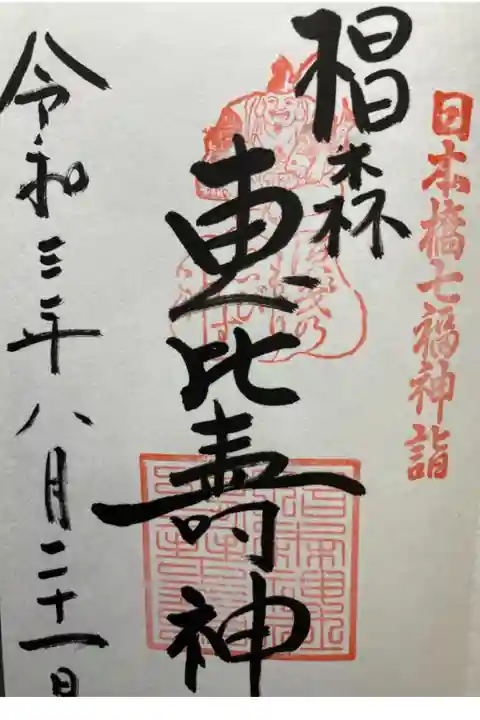 日本橋七福神詣
椙森
恵比寿神
令和三年八月二十一日